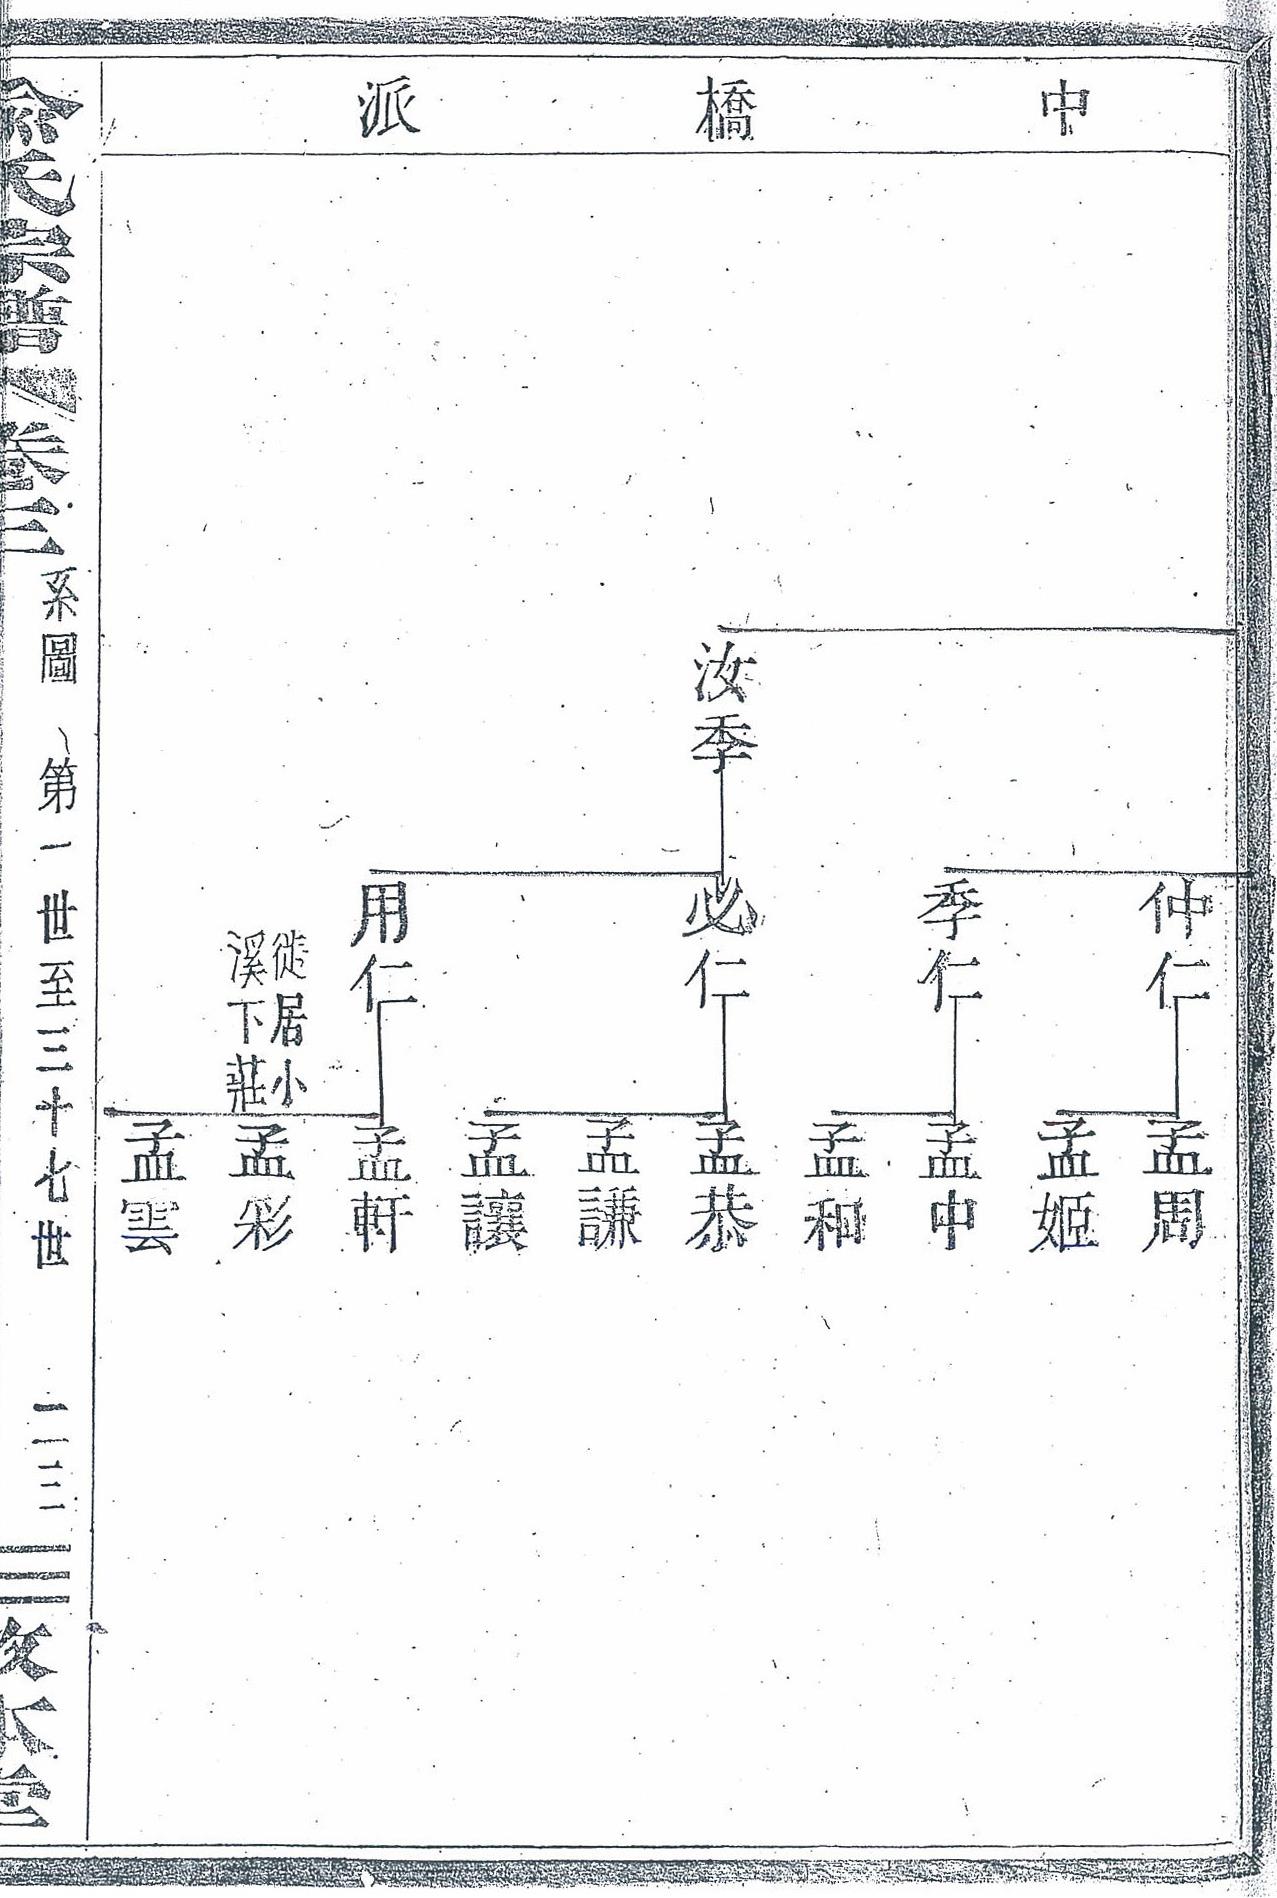 中橋派
汝季
仲仁
季仁
必仁
用仁
徙居小
溪下莊
孟周
孟姬
孟中
孟和
孟恭
孟謙
孟讓
孟軒
孟彩
孟雲
俞氏宗譜
卷三
系圖
第一世至三十七世
敦本堂